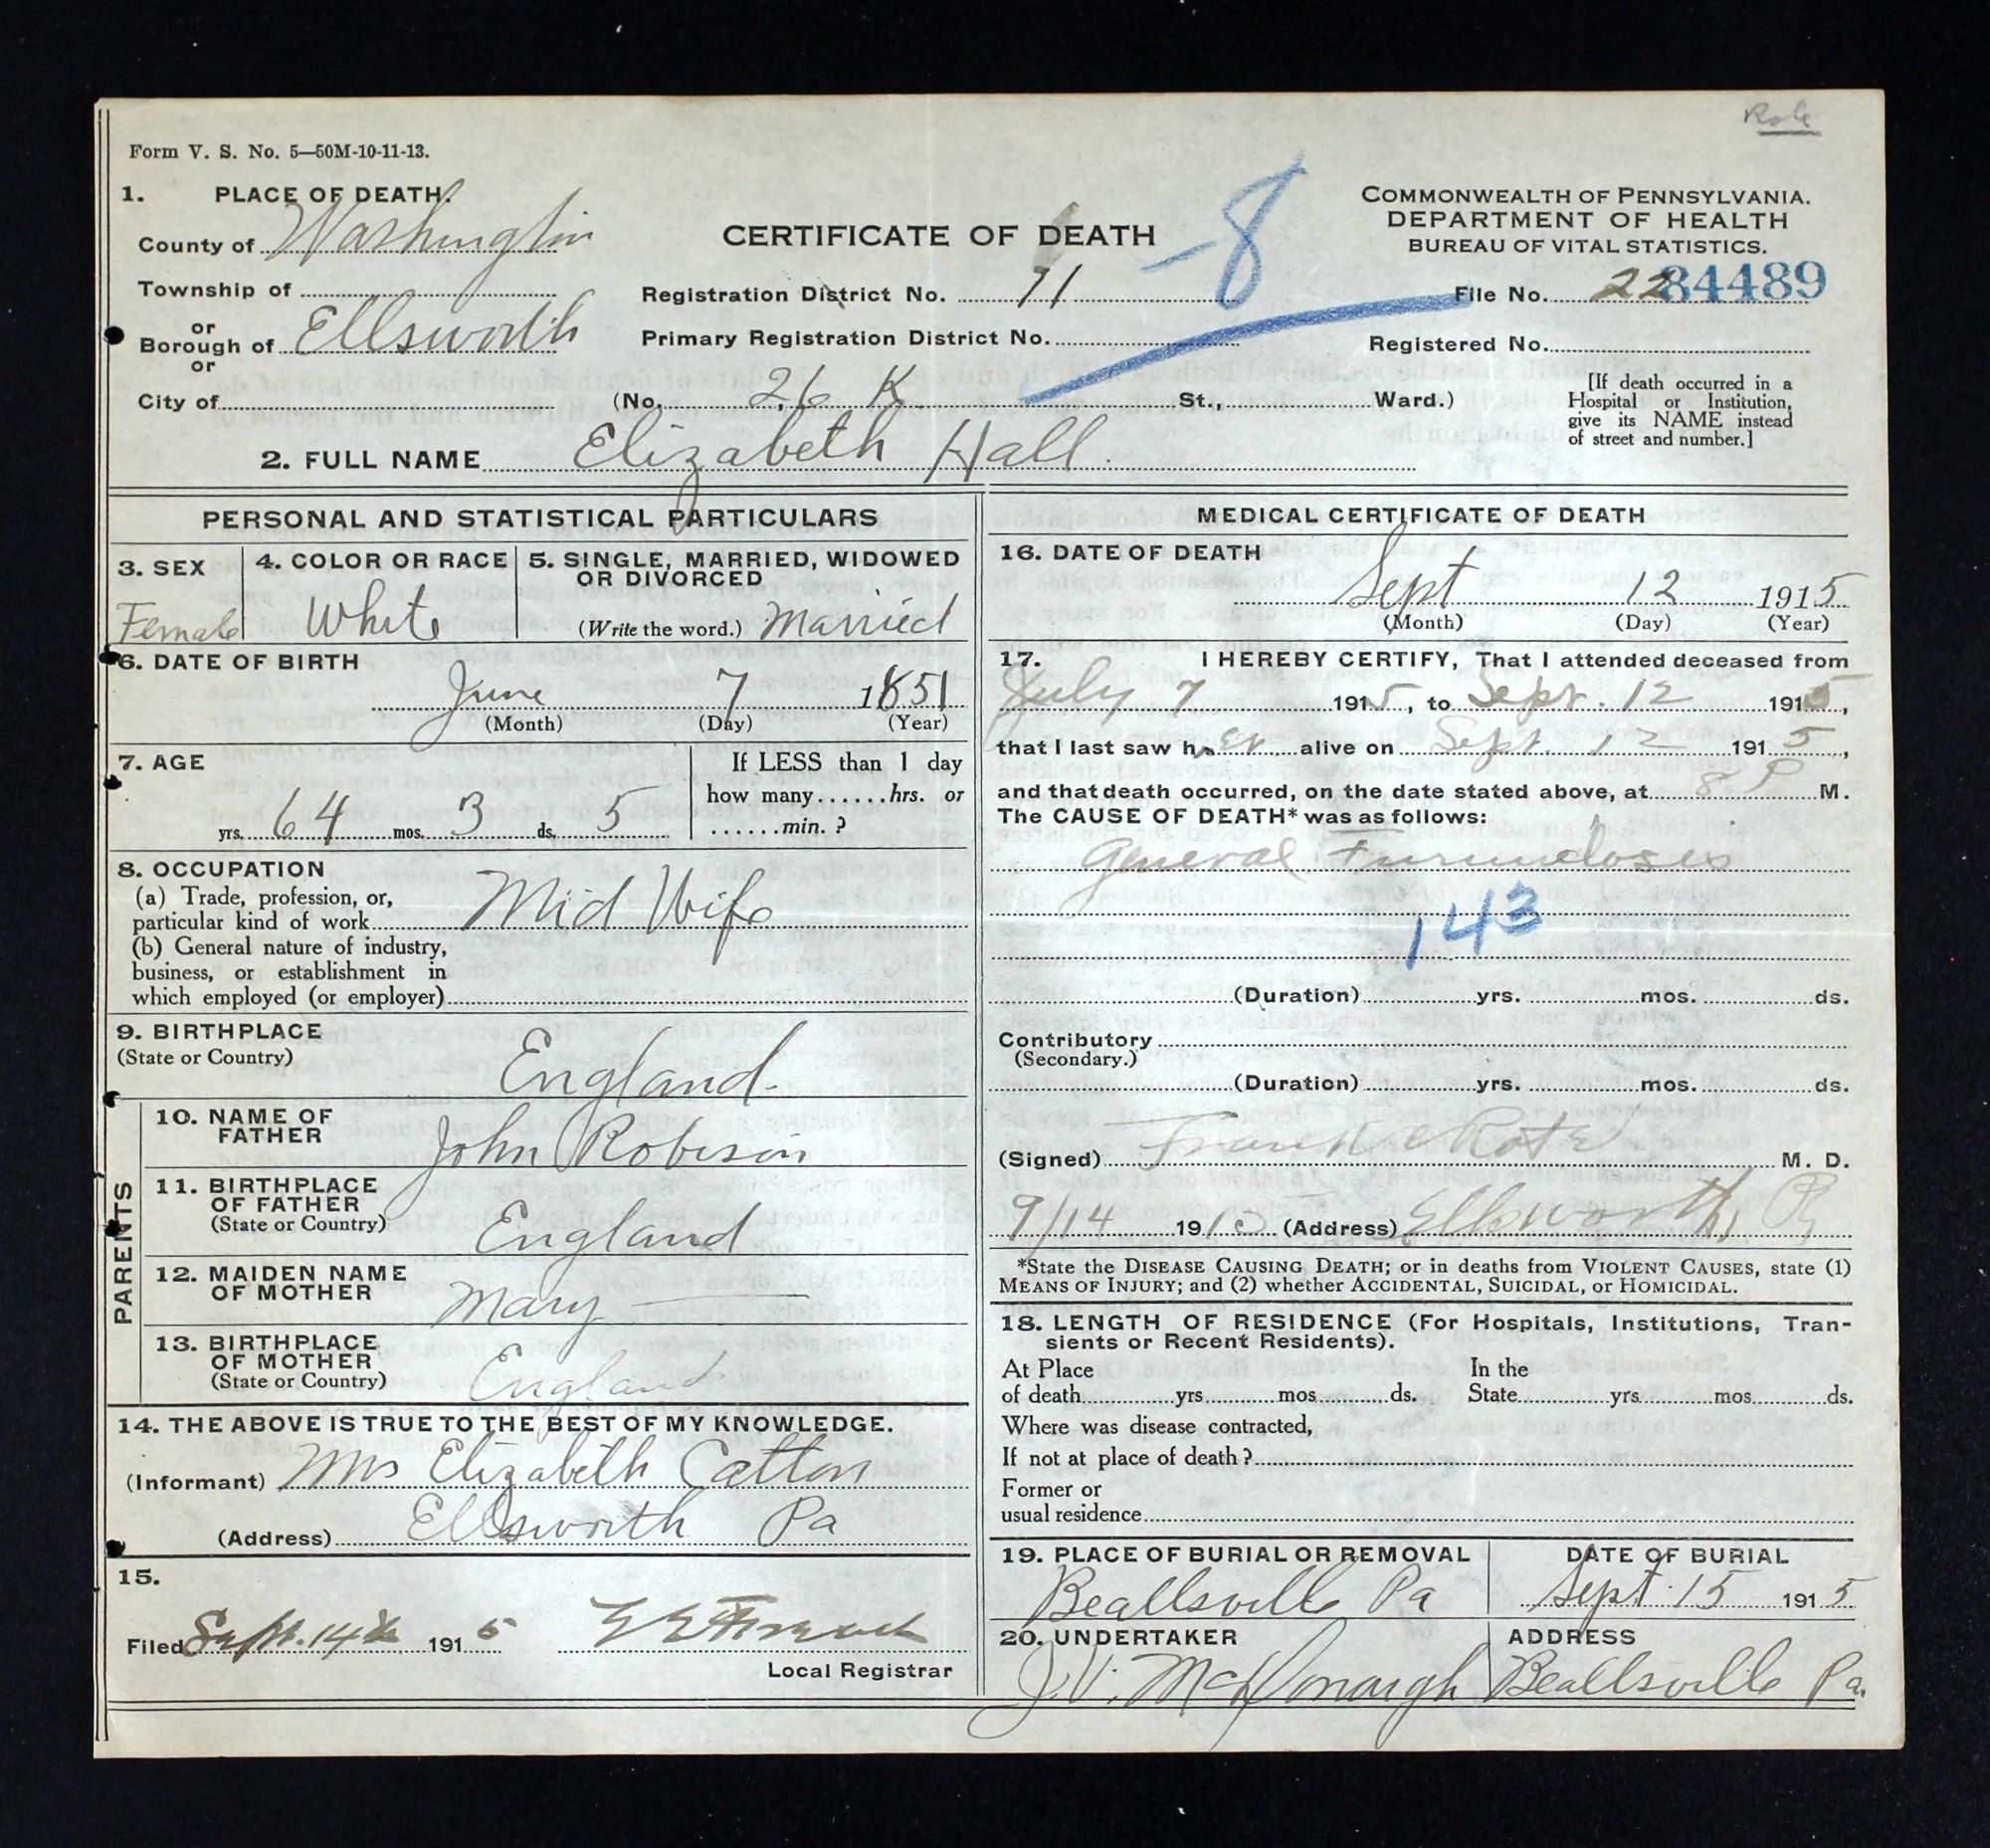 Role
Form V. S. No. 5—50M-10-11-13.
1. PLACE OF DEATH.
County of Washington
Township of
or
Borough of Ellsworth
or
City of
CERTIFICATE OF DEATH
-8
COMMONWEALTH OF PENNSYLVANIA.
DEPARTMENT OF HEALTH
BUREAU OF VITAL STATISTICS.
Registration District No. 71
File No. 22 84489
Primary Registration District No.
Registered No.
(No. 26 K St., Ward.)
[If death occurred in a
Hospital or Institution,
give its NAME instead
of street and number.]
2. FULL NAME Elizabeth Hall.
PERSONAL AND STATISTICAL PARTICULARS
3. SEX
Female
4. COLOR OR RACE
White
5. SINGLE, MARRIED, WIDOWED
OR DIVORCED
(Write the word.) Married
6. DATE OF BIRTH
June 7 1851
(Month) (Day) (Year)
7. AGE
yrs. 64 mos. 3 ds. 5
If LESS than 1 day
how many......hrs. or
......min. ?
8. OCCUPATION
(a) Trade, profession, or,
particular kind of work Mid Wife
(b) General nature of industry,
business, or establishment in
which employed (or employer)
9. BIRTHPLACE
(State or Country)
England.
PARENTS
10. NAME OF
FATHER
John Robison
11. BIRTHPLACE
OF FATHER
(State or Country)
England
12. MAIDEN NAME
OF MOTHER
Mary
13. BIRTHPLACE
OF MOTHER
(State or Country)
England
14. THE ABOVE IS TRUE TO THE BEST OF MY KNOWLEDGE.
(Informant) Mrs Elizabeth Catton
(Address) Ellsworth Pa
15.
Filed Sept. 14th 1915
Local Registrar
MEDICAL CERTIFICATE OF DEATH
16. DATE OF DEATH
Sept 12 1915
(Month) (Day) (Year)
17. I HEREBY CERTIFY, That I attended deceased from
July 7 1915, to Sept. 12 1915,
that I last saw her alive on Sept. 12 1915,
and that death occurred, on the date stated above, at 8 P M.
The CAUSE OF DEATH* was as follows:
General Furunculosis
143
(Duration) yrs. mos. ds.
Contributory
(Secondary.)
(Duration) yrs. mos. ds.
(Signed) Frank C Rote M. D.
9/14 1915 (Address) Ellsworth, Pa
*State the DISEASE CAUSING DEATH; or in deaths from VIOLENT CAUSES, state (1)
MEANS OF INJURY; and (2) whether ACCIDENTAL, SUICIDAL, or HOMICIDAL.
18. LENGTH OF RESIDENCE (For Hospitals, Institutions, Tran-
sients or Recent Residents).
At Place In the
of death yrs mos ds. State yrs mos ds.
Where was disease contracted,
If not at place of death ?
Former or
usual residence
19. PLACE OF BURIAL OR REMOVAL
Beallsville Pa
DATE OF BURIAL
Sept. 15 1915
20. UNDERTAKER
J. V. McDonough
ADDRESS
Beallsville Pa.